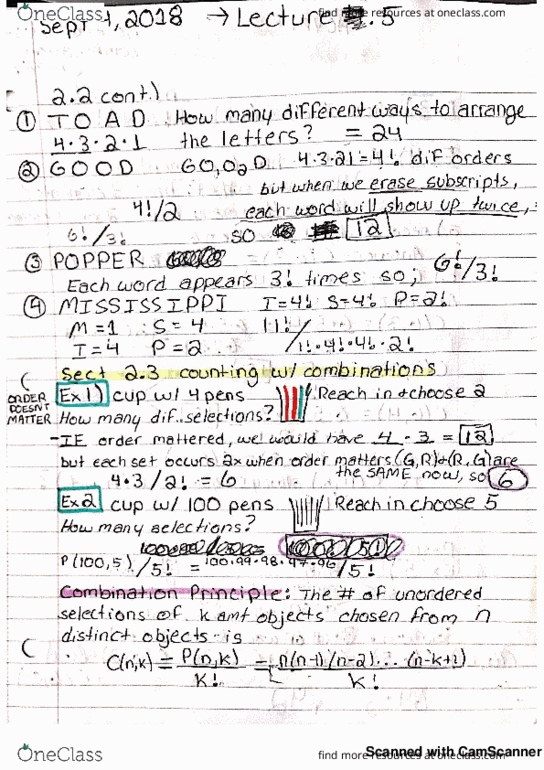 OneClass
find more resources at oneclass.com
Sept 4, 2018 → Lecture .5
2.2 cont.)
① T O A D How many different ways to arrange
4·3·2·1 the letters? = 24
② G O O D GO₁O₂D 4·3·21=4! dif orders
but when we erase subscripts,
4!/2 each word will show up twice,
6!/3! so 12
③ POPPER
Each word appears 3! times so; 6!/3!
④ MISSISSIPPI I=4! S=4! P=2!
M=1 S=4 11!/
I=4 P=2 /1!·4!·4!·2!
Sect 2.3 counting w/ combinations
( ORDER DOESNT MATTER
Ex 1) cup w/ 4 pens Reach in + choose 2
How many dif. selections?
-IF order mattered, we would have 4 · 3 = 12
but each set occurs 2x when order matters (G,R)+(R,G) are
4·3/2! = 6 the SAME now, so 6
Ex 2 cup w/ 100 pens Reach in choose 5
How many selections?
P(100,5)/5! = 100·99·98·97·96/5!
Combination Principle: The # of unordered
selections of k amt objects chosen from n
distinct objects is
C(n,k) = P(n,k)/k! = n(n-1)(n-2)... (n-k+1)/k!
OneClass
find more resources at oneclass.com
Scanned with CamScanner